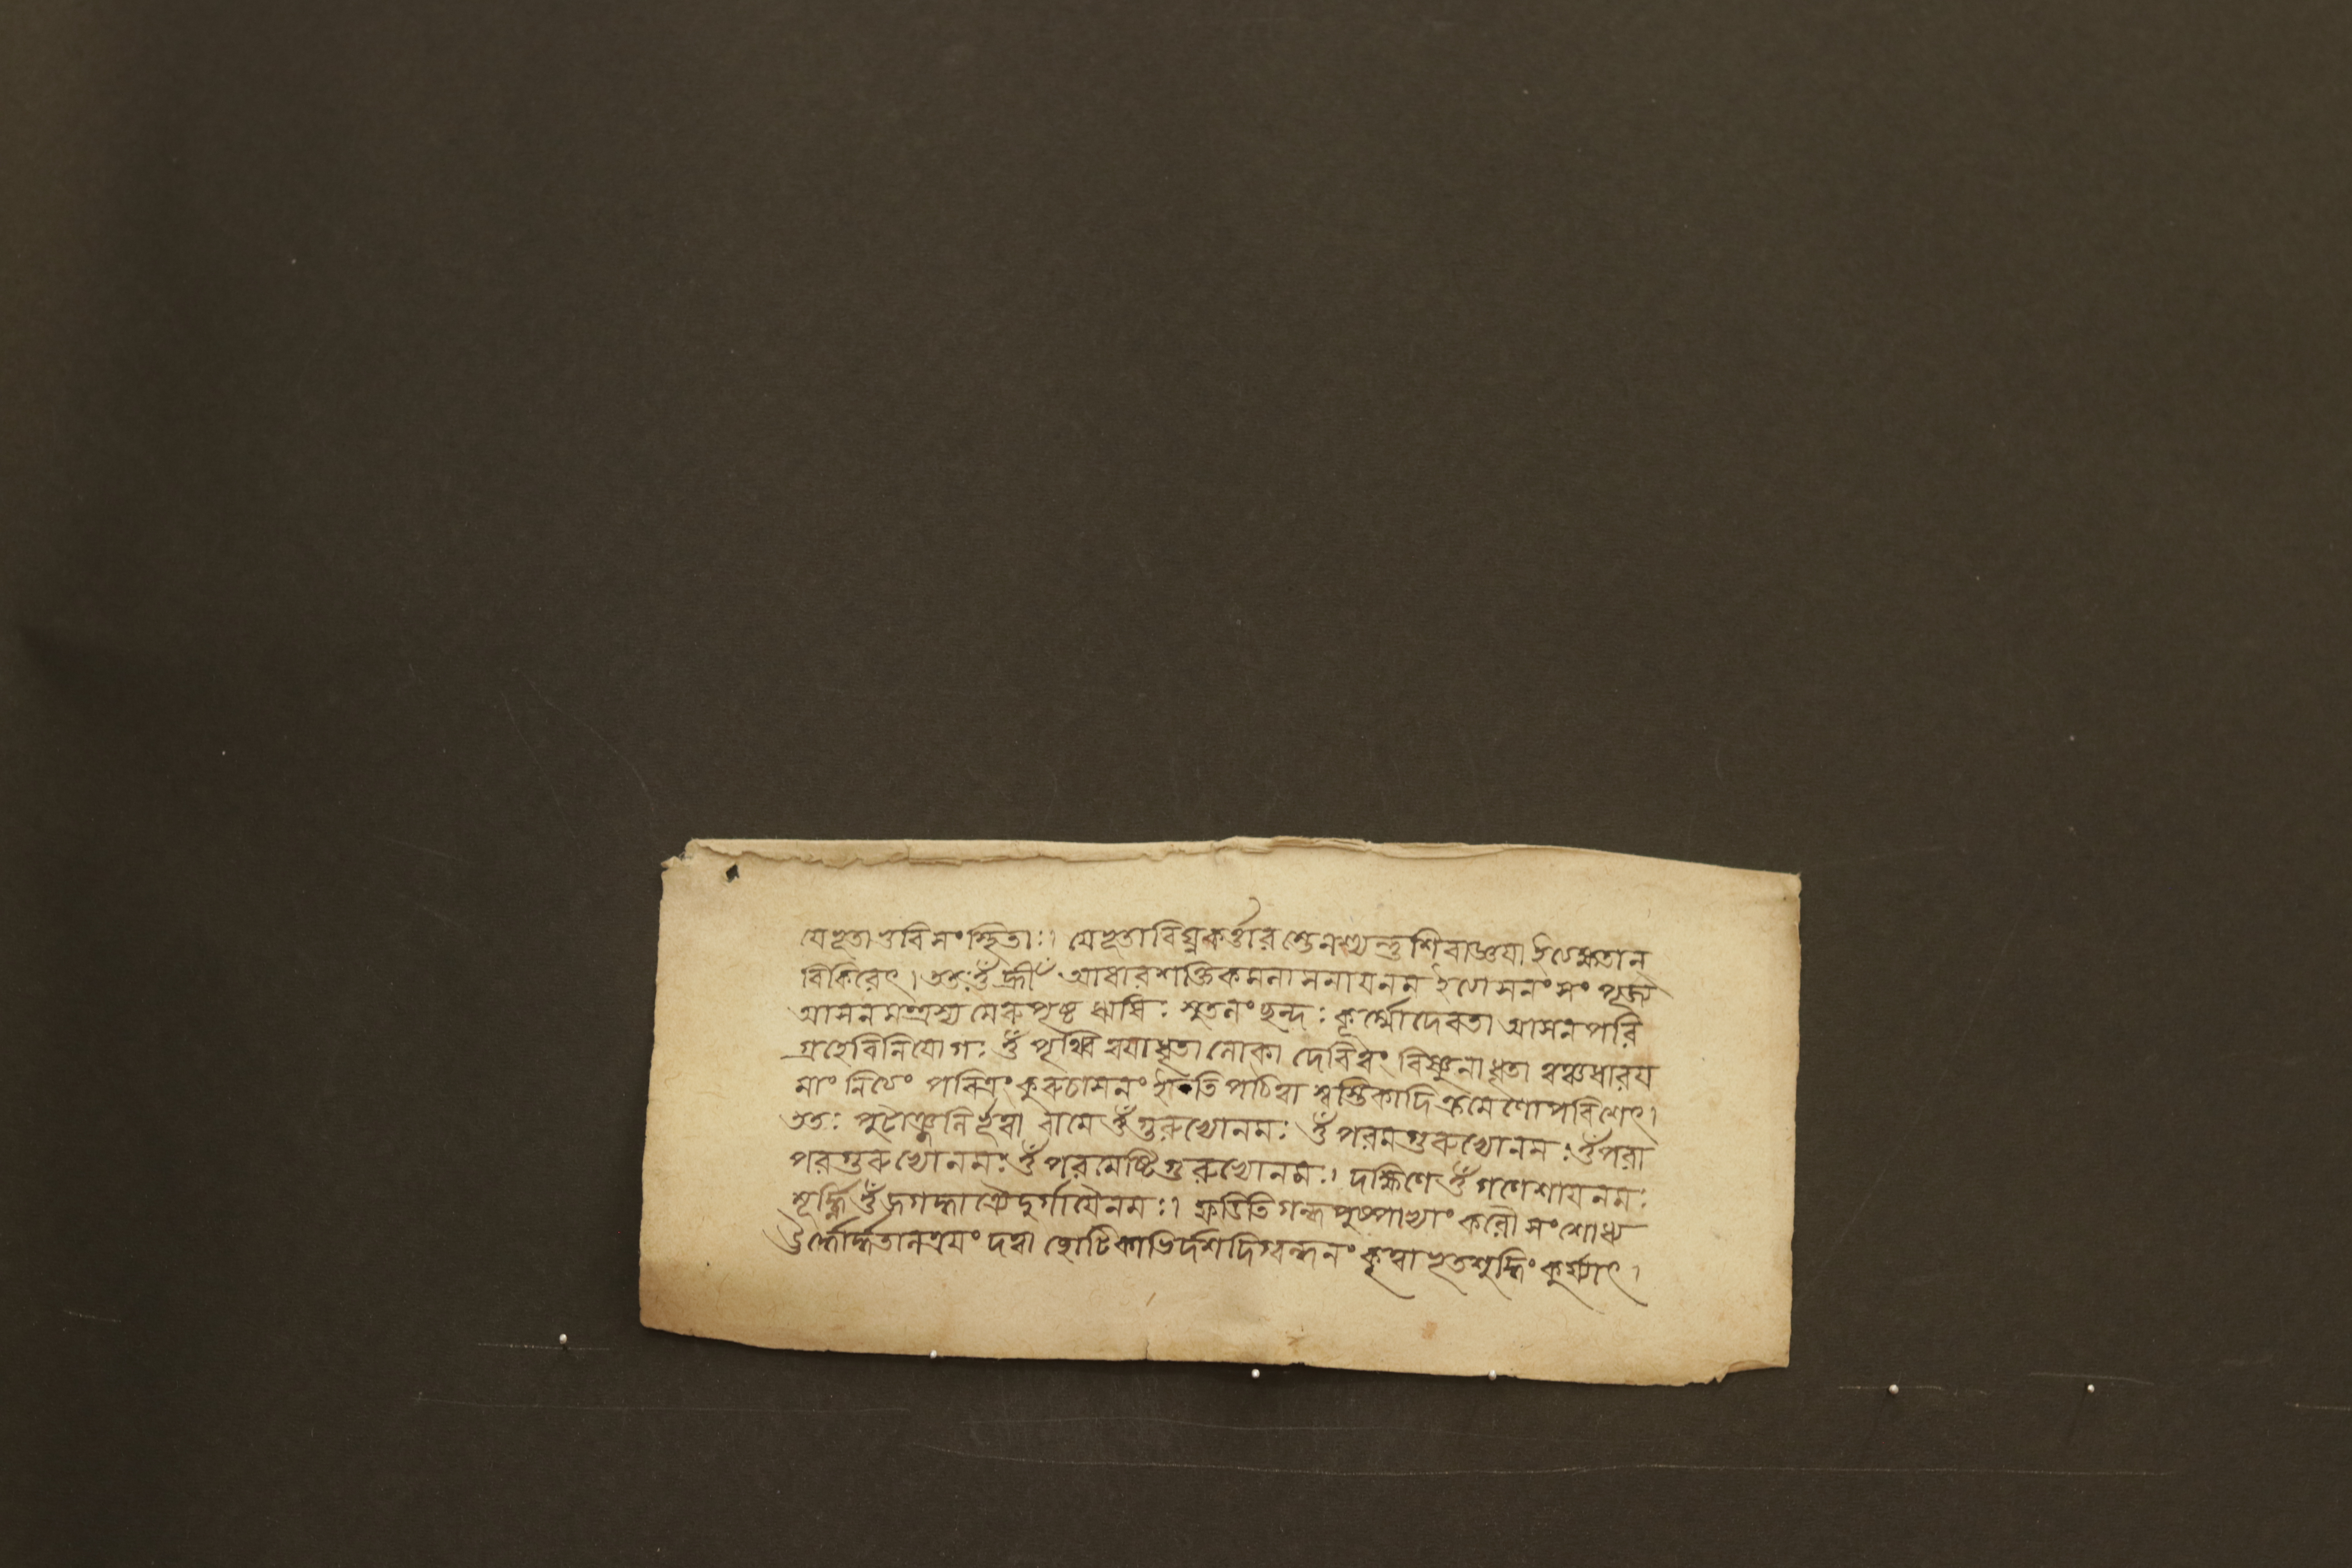 যেভূতা ভুবি সংস্থিতাঃ। যেভূতা বিঘ্নকর্ত্তারস্তেনশ্যন্তু শিবাজ্ঞয়া ইত্যক্ষতান্
বিকিরেৎ। ততঃ ওঁ হ্রীঁ আধারশক্তিকমলাসনায়নম ইত্যাসনং সংপূজ্য
আসনমন্ত্রস্য মেরুপৃষ্ঠ ঋষিঃ সুতলং ছন্দঃ কূর্ম্মোদেবতা আসনপরি
গ্রহেবিনিয়োগঃ ওঁ পৃথ্বি ত্বয়াধৃতা লোকা দেবিত্বং বিষ্ণুনাধৃতা ত্বঞ্চধারয়
মাং নিত্যং পবিত্রং কুরুচাসনং ইতি পঠিত্বা স্বস্তিকাদিক্রমেণোপবিশেৎ।
ততঃ পুটাঞ্জলির্ভূত্বা বামে ওঁ গুরুভ্যোনমঃ ওঁ পরমগুরুভ্যোনমঃ ওঁ পরা
পরগুরুভ্যোনমঃ ওঁ পরমেষ্টিগুরুভ্যোনমঃ। দক্ষিণে ওঁ গণেশায়নমঃ
মূর্দ্ধ্নি ওঁ দুর্গায়ৈনমঃ। ফডিতি গন্ধপুষ্পাভ্যাং করৌ সংশোধ্য
ঊর্দ্ধোর্দ্ধতালত্রয়ং দত্বা ছোটিকাভির্দশদিগ্বন্ধনং কৃত্বা ভূতশুদ্ধিং কুর্য্যাৎ।